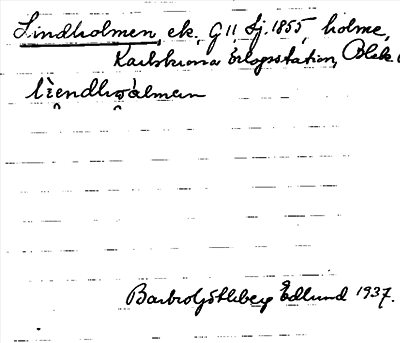 Lindholmen, ek. G 11 Sj. 1855, holme,
Karlskrona örlogsstation, Blek.
Barbro Götlberg Edlund 1937.